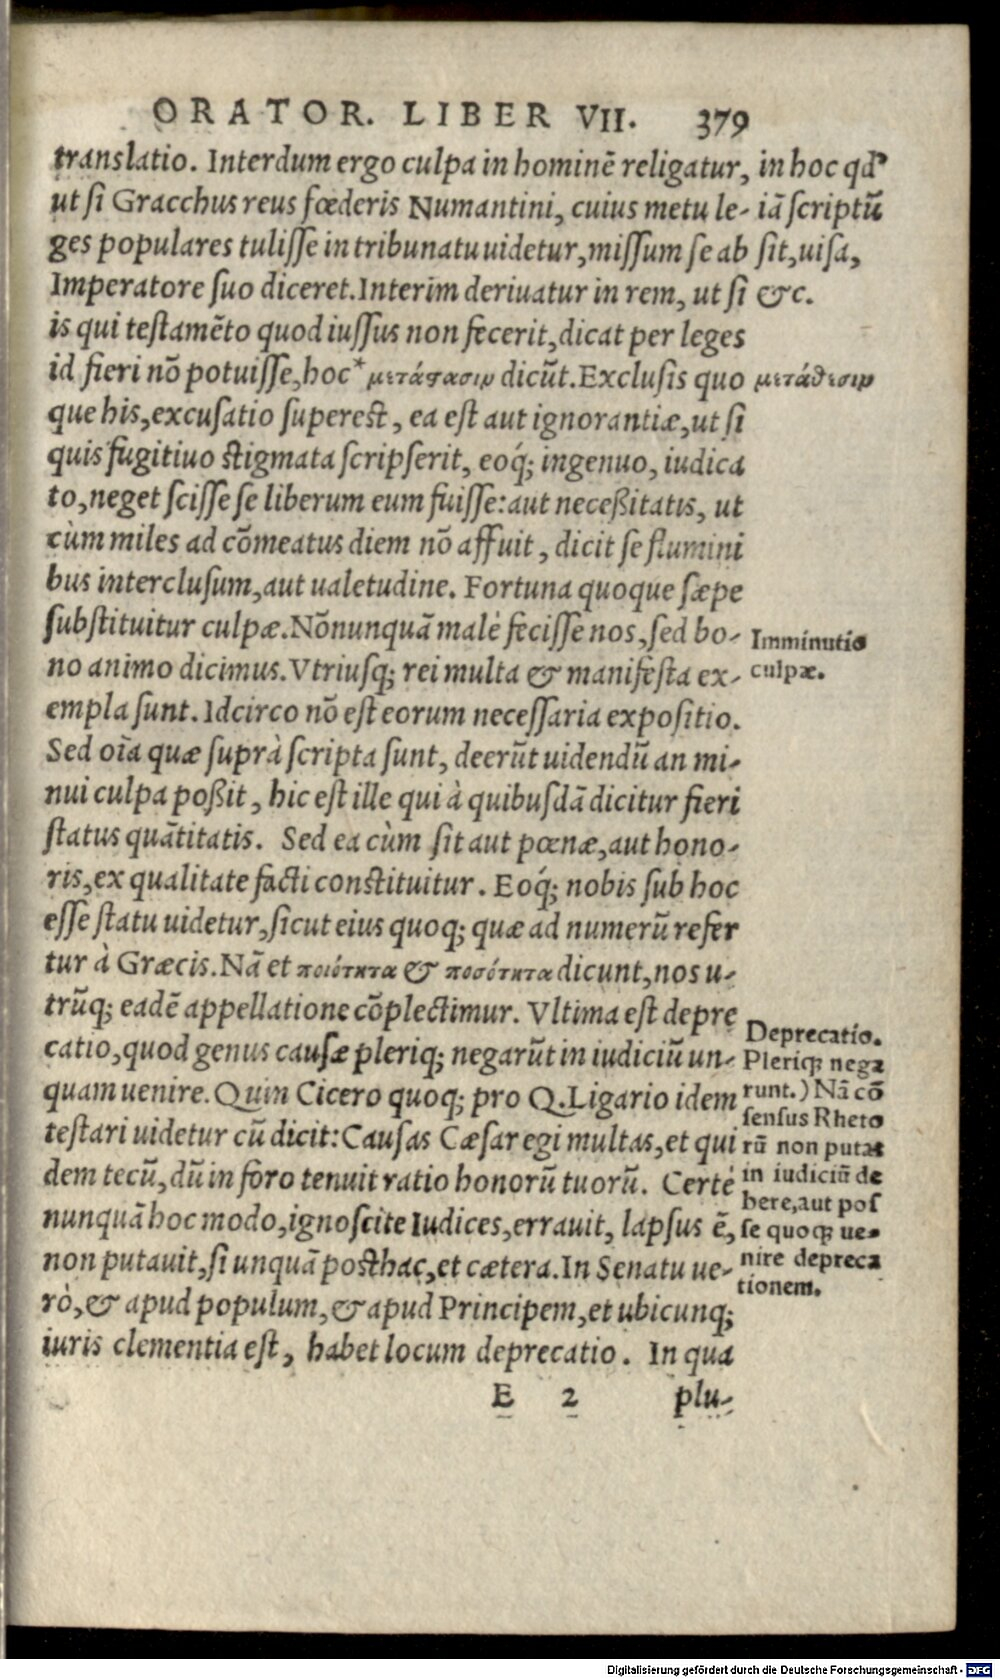 ORATOR. LIBER VII. 379
translatio. Interdum ergo culpa in hominē religatur,
ut si Gracchus reus fœderis Numantini, cuius metu le-
ges populares tulisse in tribunatu uidetur, missum se ab
Imperatore suo diceret. Interim deriuatur in rem, ut si
is qui testamēto quod iussus non fecerit, dicat per leges
id fieri nō potuisse, hoc* μετάϛασιν dicūt. Exclusis quo
que his, excusatio superest, ea est aut ignorantiæ, ut si
quis fugitiuo stigmata scripserit, eoq́; ingenuo, iudica
to, neget scisse se liberum eum fuisse: aut neceßitatis, ut
cùm miles ad cōmeatus diem nō affuit, dicit se flumini
bus interclusum, aut ualetudine. Fortuna quoque sæpe
substituitur culpæ. Nōnunquā malè fecisse nos, sed bo-
no animo dicimus. Vtriusq; rei multa & manifesta ex-
empla sunt. Idcirco nō est eorum necessaria expositio.
Sed oīa quæ suprà scripta sunt, deerūt uidendū an mi-
nui culpa poßit, hic est ille qui à quibusdā dicitur fieri
status quātitatis. Sed ea cùm sit aut pœnæ, aut hono-
ris, ex qualitate facti constituitur. Eoq́; nobis sub hoc
esse statu uidetur, sicut eius quoq; quæ ad numerū refer
tur à Græcis. Nā et ποιότητα & ποσότητα dicunt, nos u-
trūq; eadē appellatione cōplectimur. Vltima est depre
catio, quod genus causæ pleriq; negarūt in iudiciū un-
quam uenire. Quin Cicero quoq; pro Q. Ligario idem
testari uidetur cū dicit: Causas Cæsar egi multas, et qui
dem tecū, dū in foro tenuit ratio honorū tuorū. Certè
nunquā hoc modo, ignoscite Iudices, errauit, lapsus ē,
non putauit, si unquā posthac, et cætera. In Senatu ue-
rò, & apud populum, & apud Principem, et ubicunq;
iuris clementia est, habet locum deprecatio. In qua
E 2 plu-
in hoc qd'
iā scriptū
sit, uisa,
&c.
μετάθεσιν
Imminutio
culpæ.
Deprecatio.
Pleriq; nega
runt.) Nā cō
sensus Rheto
rū non putat
in iudiciū de
bere, aut pos
se quoq; ue-
nire depreca
tionem.
Digitalisierung gefördert durch die Deutsche Forschungsgemeinschaft - DFG